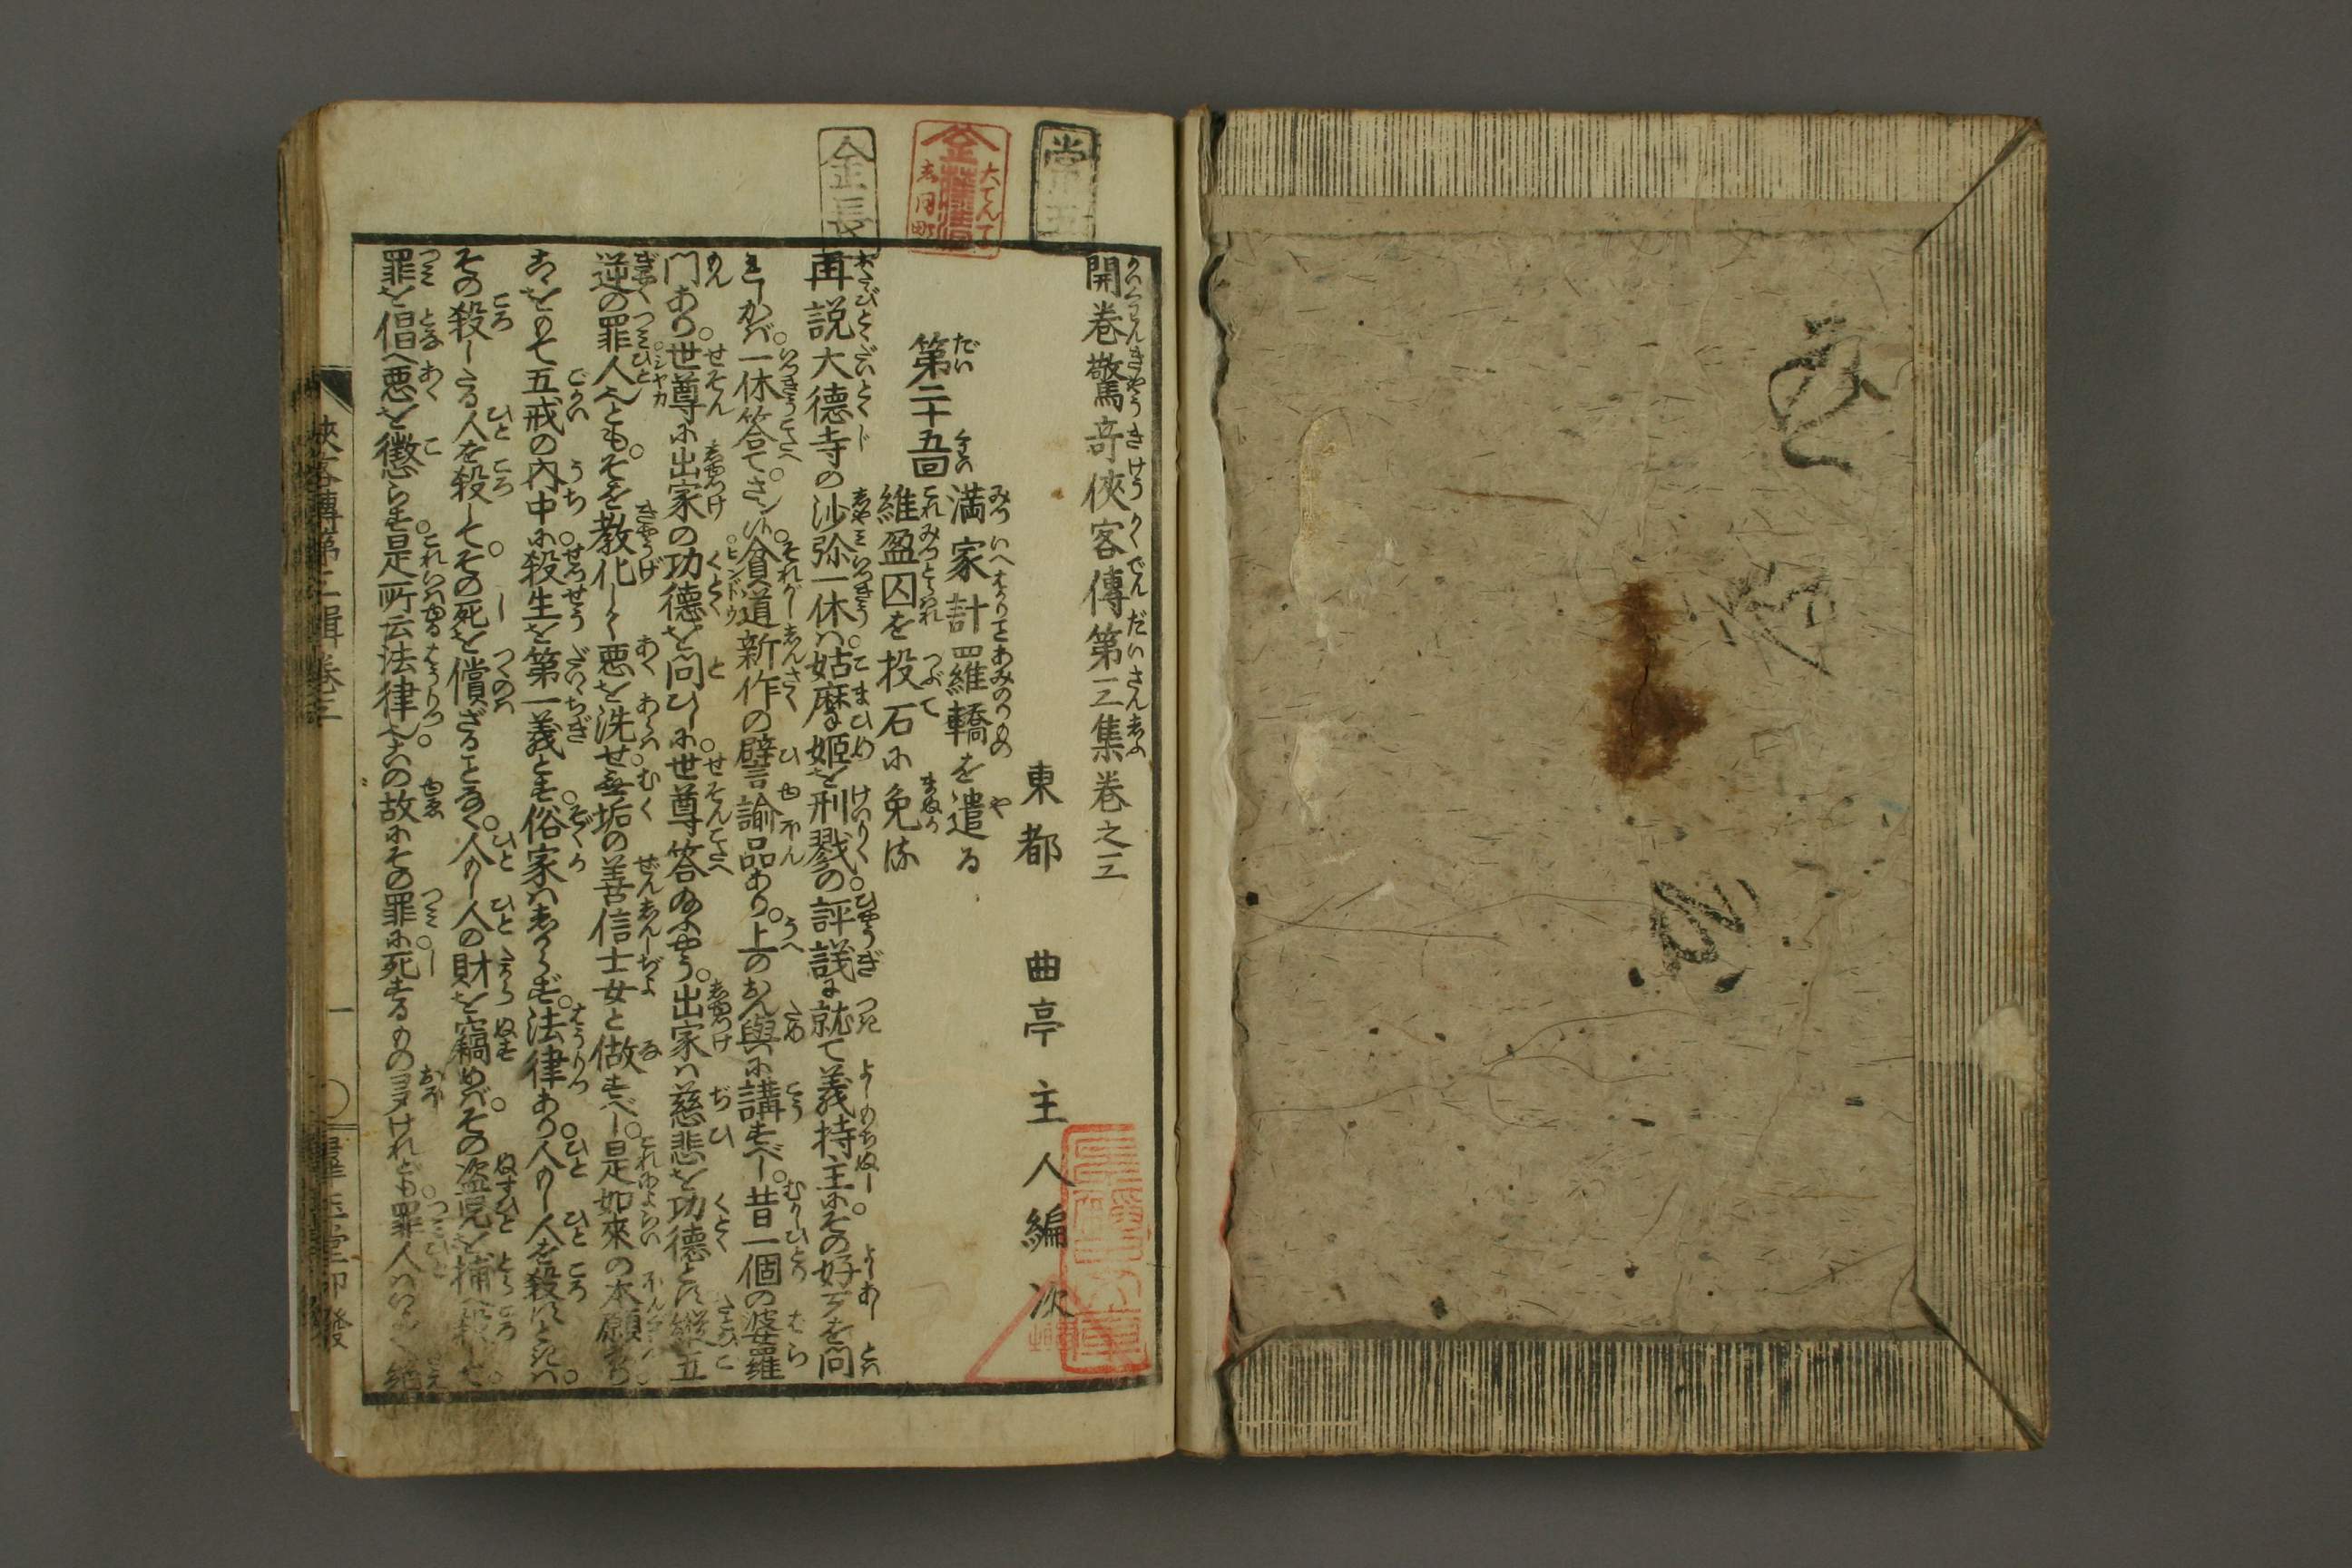 開巻驚奇俠客傳第三集巻之三
東都 曲亭主人編次
第二十五回
満家計羅轎を遣る
維盈囚を投石に免す
再説大德寺の沙弥一休ハ姑摩姫を刑戮の評議に就て義持主にその好歹を問
れしかバ一休答てさン候貧道新作の譬諭品あり上のおん與に講ずべし昔一個の婆羅
門あり世尊に出家の功德を問ひしに世尊答給ふやう出家ハ慈悲を功德とす縦五
逆の罪人也ともそを教化して悪を洗せ無垢の善信士女と做すべし是如來の本願
こゝをもて五戒の内中に殺生を第一義とす俗家ハしからず法律あり人もし人を殺すときハ
その殺しゝる人を殺してその死を償ざることなく人もし人の財を竊めバその盗児を捕
罪を倡へ悪を懲らす是所云法律也この故にその罪に死するもの夥けれども罪人ハ
俠客傳第三輯巻三
一
金長
大てんま